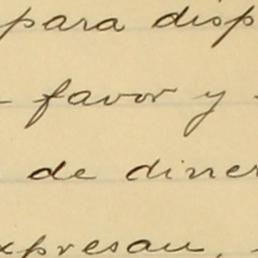 para disp
favor y
de diner
xpresan,